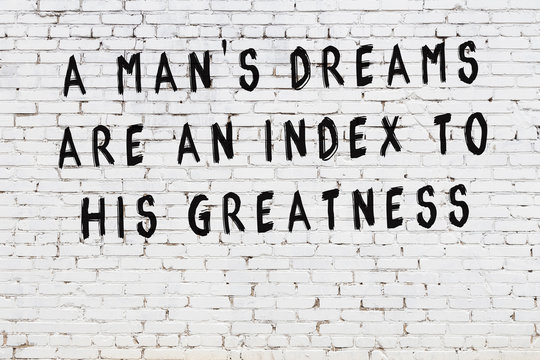 A MAN'S DREAMS
ARE AN INDEX TO
HIS GREATNESS